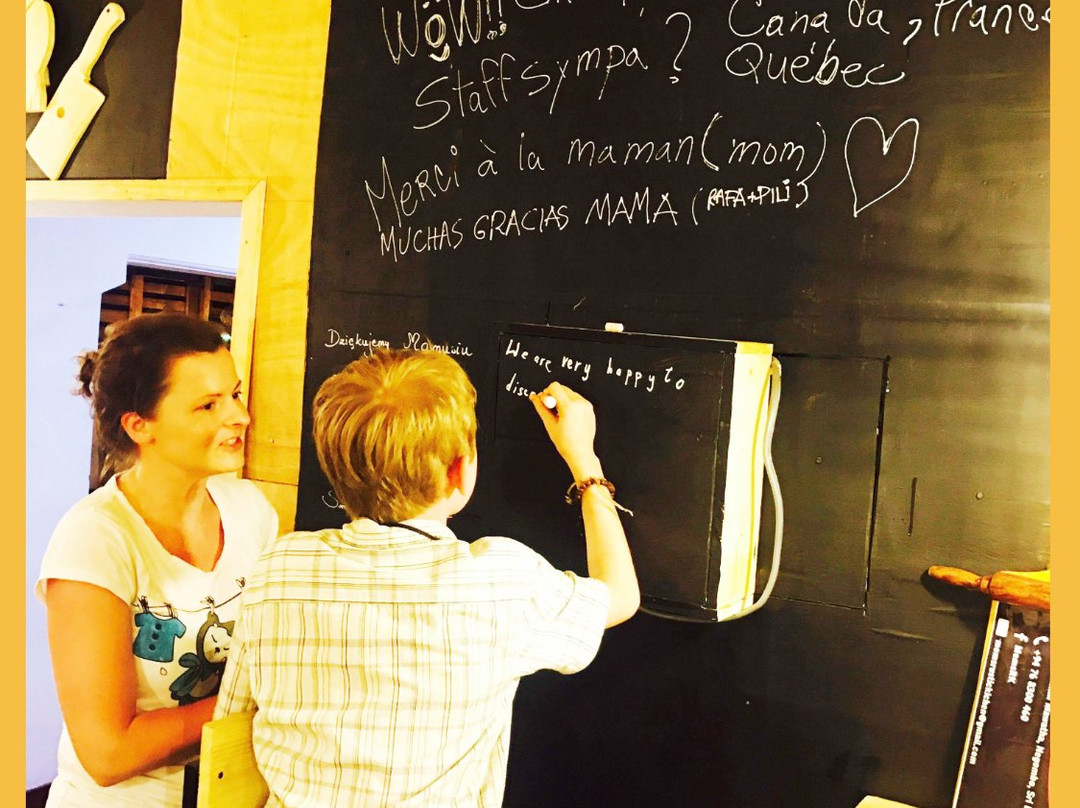 WOW!!
Canada, France
Staff sympa? Québec
Merci à la maman (mom)
MUCHAS GRACIAS MAMA (RAFA+PILI)
Dziękujemy Mamusiu
We are very happy to
disco
Negombo, Sri
+94 76 8300 460